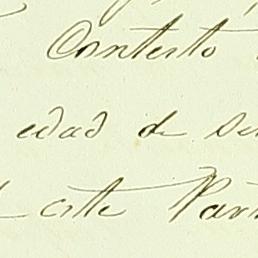 Contesto
edad de se
este Par